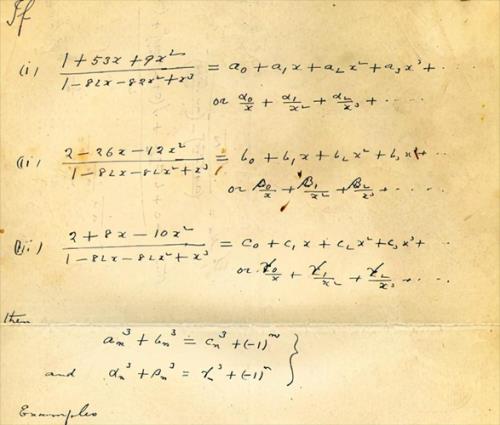 If
(i) (1 + 53x + 9x²)/(1 - 82x - 82x² + x³) = a₀ + a₁x + a₂x² + a₃x³ + ···
or α₀/x + α₁/x² + α₂/x³ + ····
(ii) (2 - 26x - 12x²)/(1 - 82x - 82x² + x³) = b₀ + b₁x + b₂x² + b₃x³ + ···
or β₀/x + β₁/x² + β₂/x³ + ·····
(iii) (2 + 8x - 10x²)/(1 - 82x - 82x² + x³) = c₀ + c₁x + c₂x² + c₃x³ + ··
or γ₀/x + γ₁/x² + γ₂/x³ + ····
then
aₙ³ + bₙ³ = cₙ³ + (-1)ⁿ }
and αₙ³ + βₙ³ = γₙ³ + (-1)ⁿ
Examples